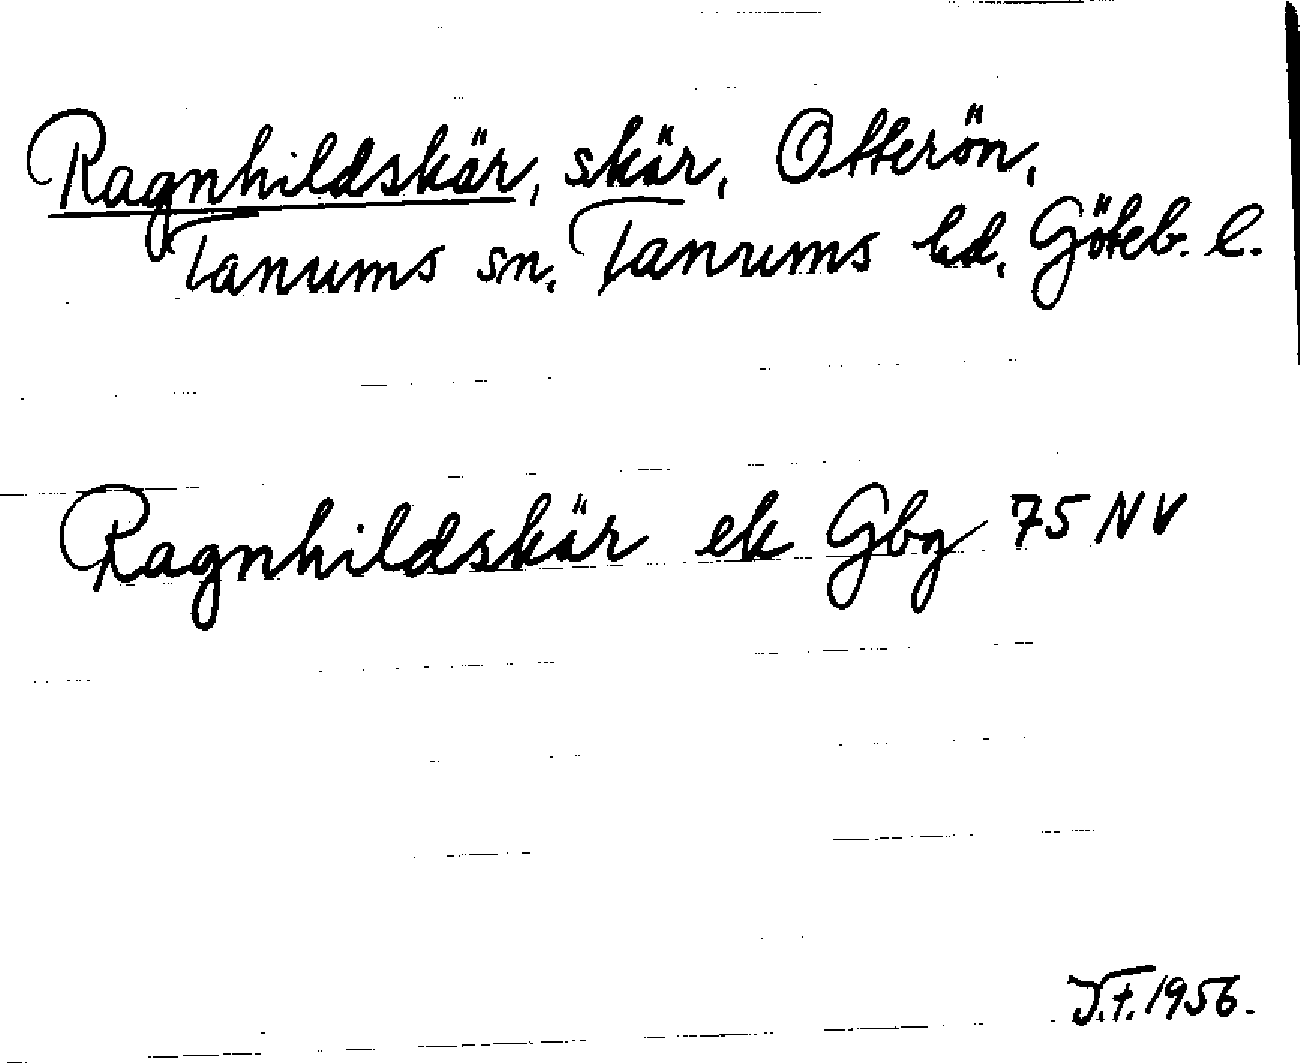 Ragnhildskär, skär, Otterön,
Tanums sn. Tanums hd. Göteb. l.
Ragnhildskär ek Gbg 75 NV
J.F. 1956.